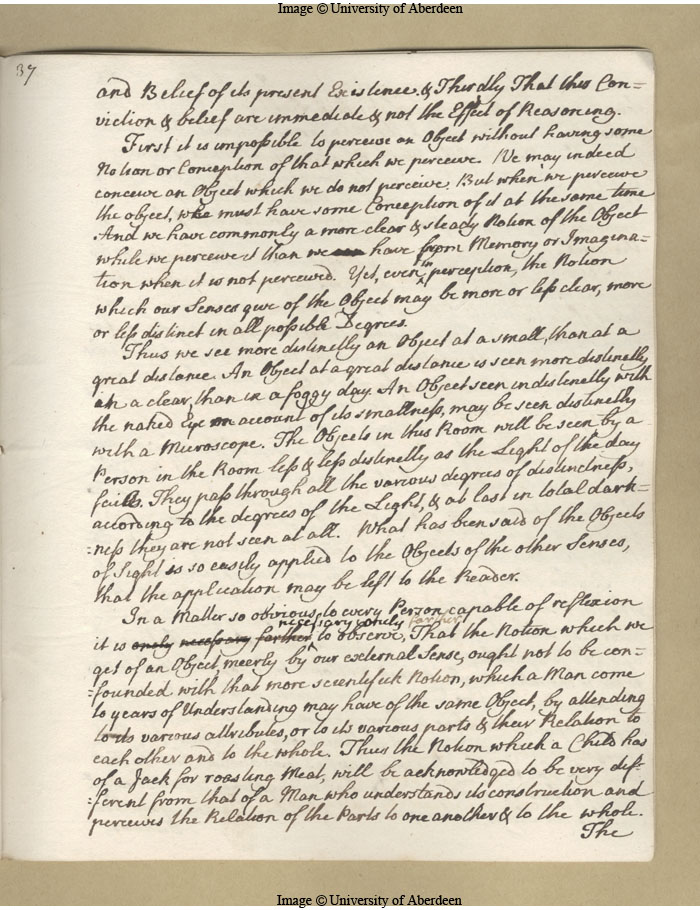 Image © University of Aberdeen
37
and Belief of its present Existence. & Thirdly That this Con=
viction & belief are immediate & not the Effect of Reasoning.
First it is impossible to perceive an Object without having some
Notion or Conception of that which we perceive. We may indeed
conceive an Object which we do not perceive. But when we perceive
the object, we must have some Conception of it at the same time
And we have commonly a more clear & steady Notion of the Object
while we perceive it than we have from Memory or Imagina=
tion when it is not perceived. Yet, even in perception, the Notion
which our Senses give of the Object may be more or less clear, more
or less distinct in all possible Degrees.
Thus we see more distinctly an Object at a small, than at a
great distance. An Object at a great distance is seen more distinctly
in a clear, than in a foggy day. An Object seen indistinctly with
the naked Eye on account of its smallness, may be seen distinctly
with a Microscope. The Objects in this Room will be seen by a
Person in the Room less & less distinctly as the Light of the day
fails. They pass through all the various degrees of distinctness,
according to the degrees of the Light, & at last in total dark=
=ness they are not seen at all. What has been said of the Objects
of Sight is so easily applied to the Objects of the other Senses,
that the application may be left to the Reader.
In a Matter so obvious to every Person capable of reflexion
it is only necessary farther necessary only farther to observe, That the Notion which we
get of an Object, meerly by our external Sense, ought not to be con=
=founded with that more scientifick Notion, which a Man come
to years of Understanding may have of the same Object, by attending
to its various attributes, or to its various parts & their Relation to
each other and to the whole. Thus the Notion which a Child has
of a Jack for roasting Meat, will be acknowledged to be very dif=
=ferent from that of a Man who understands its construction and
perceives the Relation of the Parts to one another & to the whole.
The
Image © University of Aberdeen